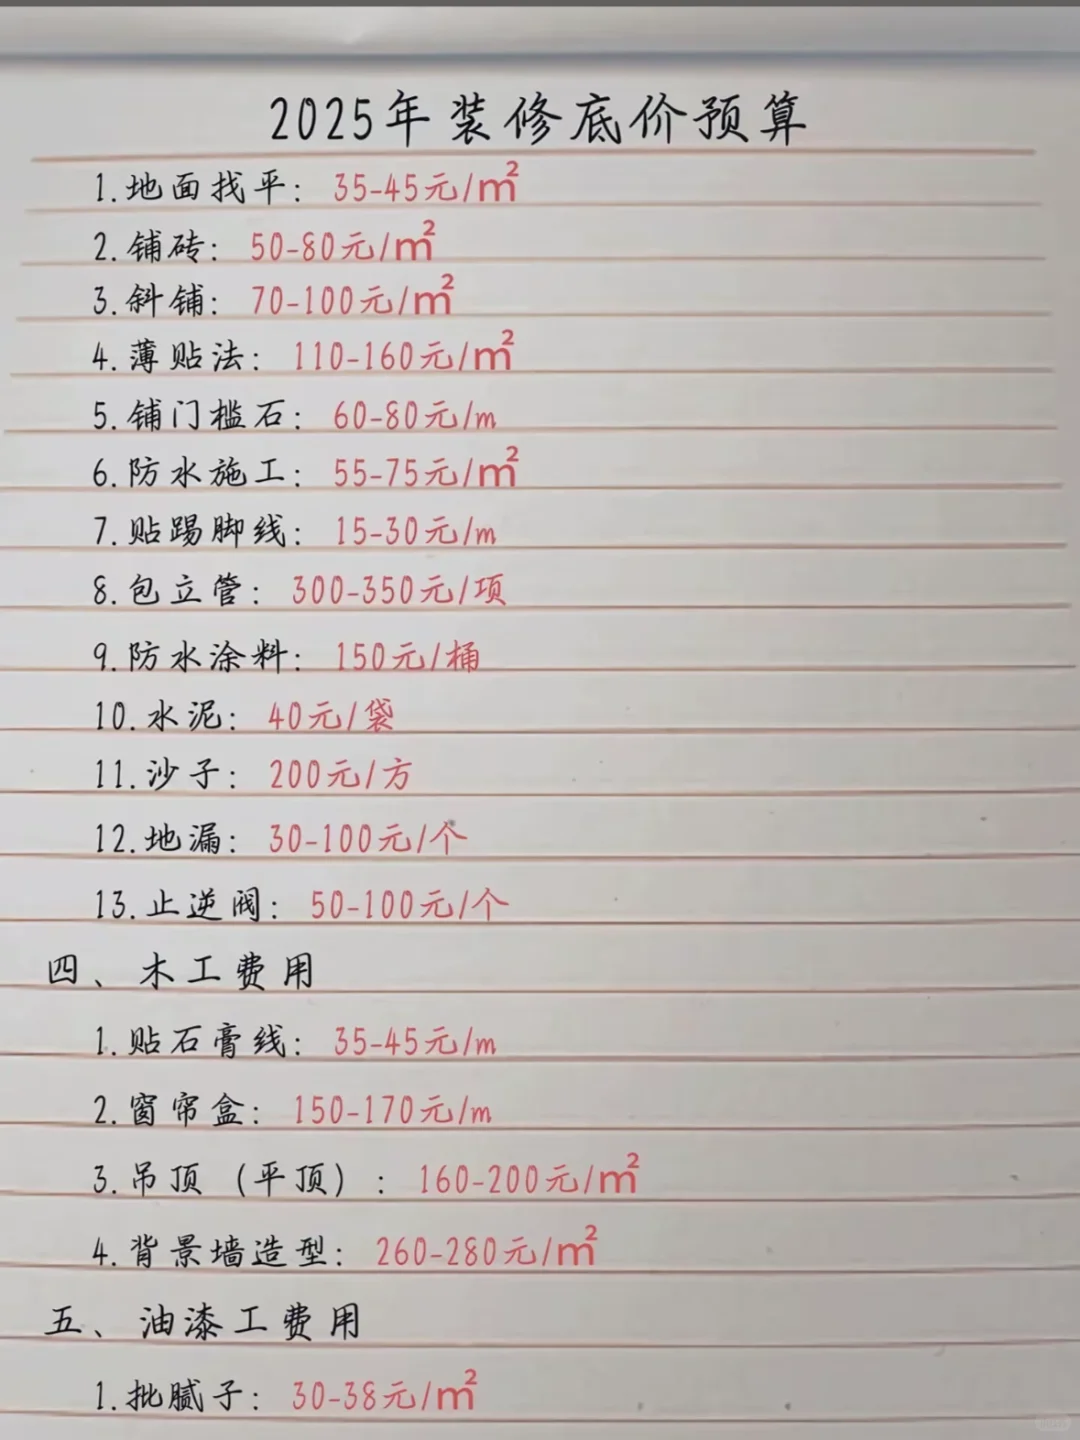 2025年装修底价预算
1.地面找平：35-45元/㎡
2.铺砖：50-80元/㎡
3.斜铺：70-100元/㎡
4.薄贴法：110-160元/㎡
5.铺门槛石：60-80元/m
6.防水施工：55-75元/㎡
7.贴踢脚线：15-30元/m
8.包立管：300-350元/项
9.防水涂料：150元/桶
10.水泥：40元/袋
11.沙子：200元/方
12.地漏：30-100元/个
13.止逆阀：50-100元/个
四、木工费用
1.贴石膏线：35-45元/m
2.窗帘盒：150-170元/m
3.吊顶（平顶）：160-200元/㎡
4.背景墙造型：260-280元/㎡
五、油漆工费用
1.批腻子：30-38元/㎡